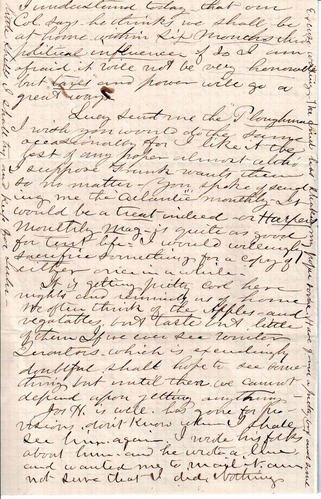 I understand today that our
Col. says he thinks we shall be
at home within Six Months thro
political influence if so I am
afraid it will not be very honorable
but and power will go a
great way
Lucy sent me the Ploughman
I wish you would do the same
occasionally for I like it the
best of any paper almost
I suppose Frank wants them
so no matter. You spoke of send
ing me the Atlantic monthly. It
would be a treat indeed or Harpers
Monthly Mag- is quite as good
for Tent life I would willingly
sacrifice something for a copy of
either once in a while.
It is getting pretty cool here
nights and reminds us of home
We often think of the Apples and
vegetables but taste but little
of them If we ever see Winter
Quarters which is exceedingly
doubtful shall hope to see some
thing but until then we cannot
depend upon getting anything
Jos H. is well. has gone for pro
visions. don't know when I shall
see him again. I wrote his folks
about him and he wrote a line
and wanted me to mail it. am
not sure that I did. Nothing